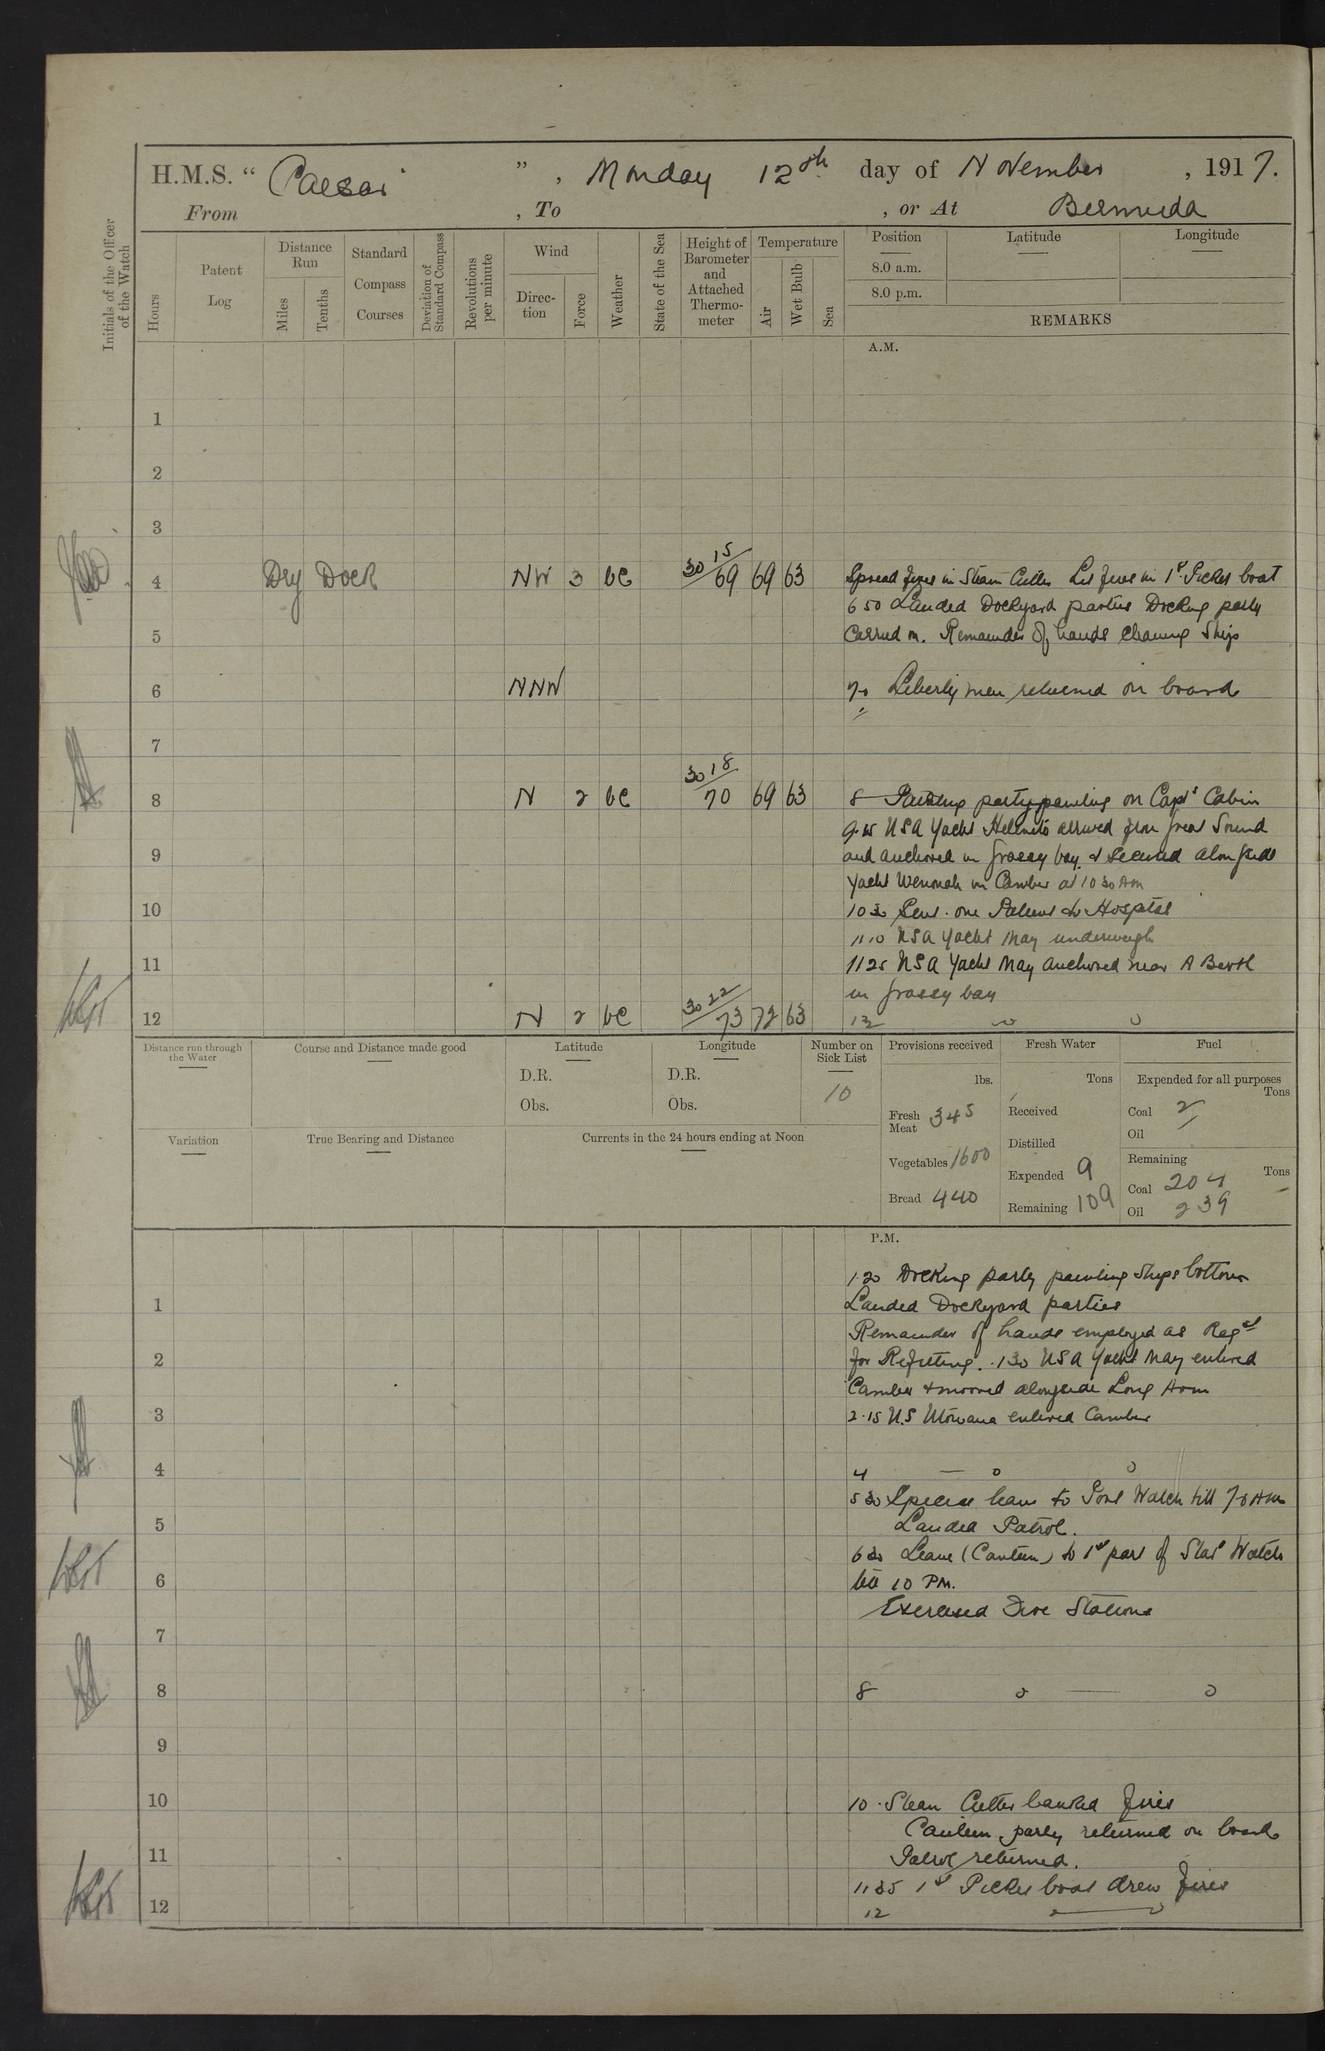 H.M.S. “ Caesar ” , Monday 12th day of November , 1917.
From , To , or At Bermuda
Initials of the Officer of the Watch
Hours
Patent Log
Distance Run
Miles
Tenths
Standard Compass Courses
Deviation of Standard Compass
Revolutions per minute
Wind
Direc-tion
Force
Weather
State of the Sea
Height of Barometer and Attached Thermo-meter
Temperature
Air
Wet Bulb
Sea
Position Latitude Longitude
8.0 a.m.
8.0 p.m.
REMARKS
A.M.
1
2
3
4 Dry Dock NW 3 bc 30 15/69 69 63 Spread fires in Steam Cutter Lit fires in 1st Picket boat
6 50 Landed Dockyard parties Docking party
5 Carried on. Remainder of hands cleaning Ship
6 NNW 7.0 Liberty men returned on board
7
8 N 2 bc 30 18/70 69 63 8 party painting on Capts Cabin
9.15 USA Yacht arrived from Great Sound
9 and anchored in Grassy bay & secured alongside
Yacht Wenonah in Camber at 10 30 Am
10 10 30 Sent one Patient to Hospital
11 10 USA Yacht May underweigh
11 11 25 USA Yacht May anchored near A Berth
in Grassy bay
12 N 2 bc 30 22/73 72 63 12 o o
Distance run through the Water
Course and Distance made good
Latitude
D.R.
Obs.
Longitude
D.R.
Obs.
Number on Sick List
10
Provisions received
lbs.
Fresh Meat 345
Vegetables 1600
Bread 440
Fresh Water
Tons
Received
Distilled
Expended 9
Remaining 109
Fuel
Expended for all purposes
Tons
Coal 2
Oil
Remaining
Tons
Coal 204
Oil 239
Variation
True Bearing and Distance
Currents in the 24 hours ending at Noon
P.M.
1.20 Docking party painting Ships bottom
1 Landed Dockyard parties
Remainder of hands employed as Reqd
2 for Refitting. 1 30 USA Yacht May entered
Camber & moored alongside Long Arm
3 2.15 U.S Utowana entered Camber
4 4 — o o
5 30 Special leave to Port Watch till 7.0 Am
5 Landed Patrol.
6 30 Leave (Canteen) to 1st part of Star Watch
6 till 10 PM.
Exercised Fire Stations
7
8 8 o — o
9
10 10. Steam Cutter banked fires
Canteen party returned on board
11 Patrol returned.
11 35 1st Picket boat drew fires
12 12